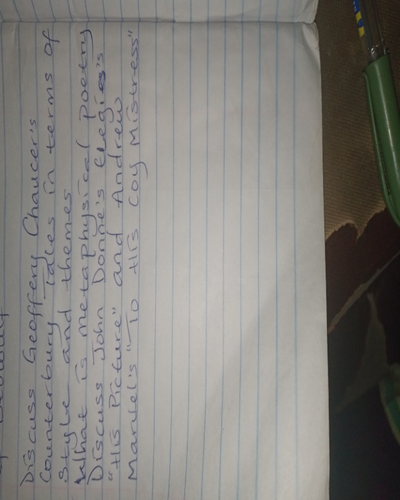 Discuss Geoffery Chaucer's
Counterbury Tales in terms of
style and themes
What is metaphysical poetry
Discuss John Donne's elegies
"His Picture" and Andrew
Marvel's "To His Coy Mistress"